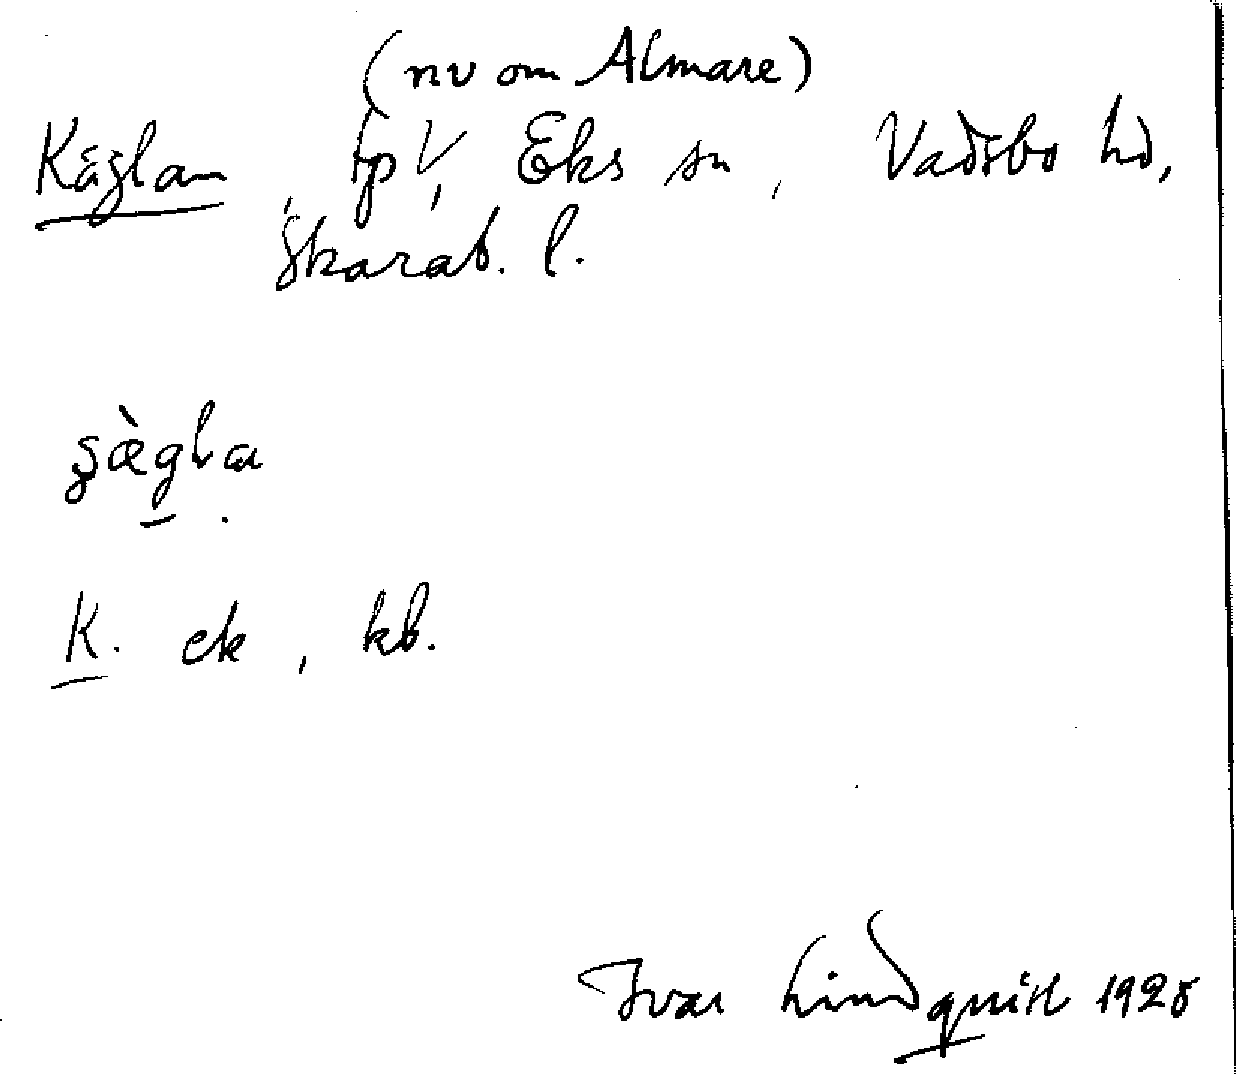 (nv om Almare)
Käglan, tp V, Eks sn, Vadsbo hd,
Skarab. l.
ʂæ̀gla
K. ek, kb.
Ivar Lindquist 1928